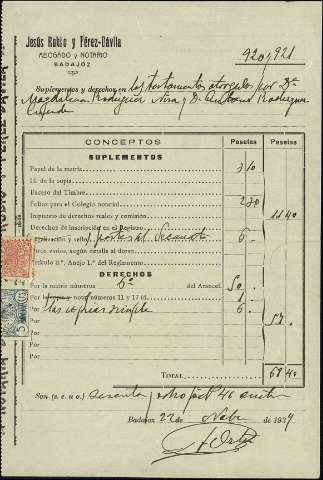 Jesús Rubio y Pérez-Dávila
ABOGADO Y NOTARIO
BADAJOZ
920 y 921
Suplementos y derechos en los testamentos otorgados por Dª
Magdalena Rodríguez y Dª Rodríguez
CONCEPTOS Pesetas Pesetas
SUPLEMENTOS
Papel de la matriz
Id. de la copia
Exceso del Timbre
Folios para el Colegio notarial
Impuesto de derechos reales y comisión 11 40
Derechos de inscripción en el Registro
y sello, portes del 6
varios, según detalle al dorso
Artículo 8.º, Anejo 1.º del Reglamento
DERECHOS
Por la matriz números 6º del Arancel 50
Por nota números 11 y 17 id. 1
Por las copias simple 6
Por 57
Por
Por
Por
TOTAL 68 40
Son (s. e. u o.) sesenta y ocho pts 40 cents
Badajoz 22 de Nobe de 1934